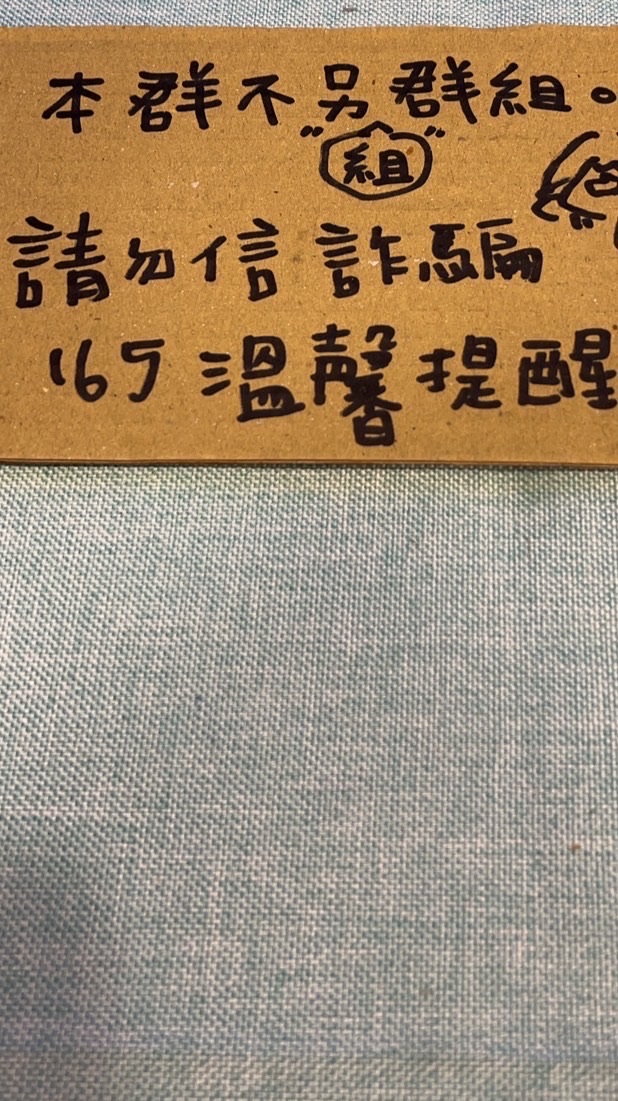 本群不另群組。
"組"
請勿信詐騙
165溫馨提醒